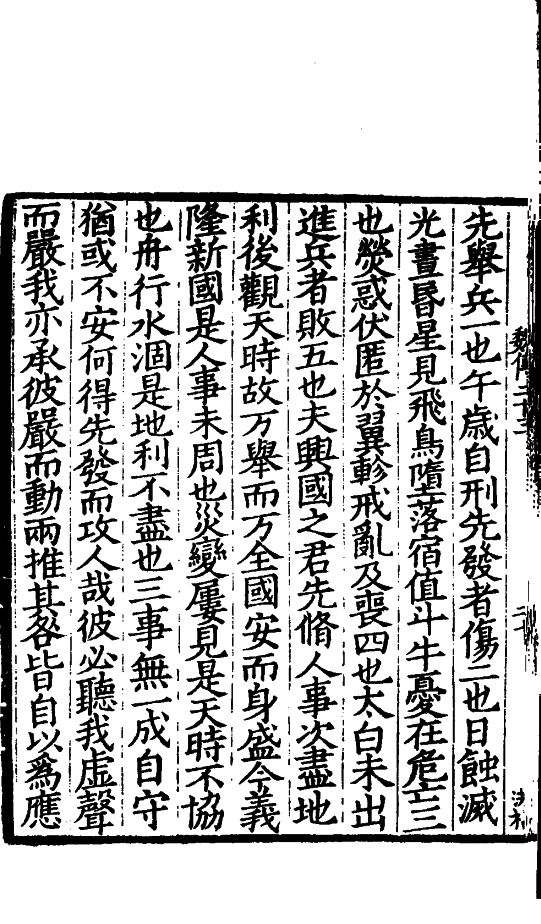 先舉兵一也午歲自刑先發者傷二也日蝕滅
光晝昏星見飛鳥墮落宿值斗牛憂在危亡三
也熒惑伏匿於翼軫戒亂及喪四也太白未出
進兵者敗五也夫興國之君先脩人事次盡地
利後觀天時故万舉而万全國安而身盛今義
隆新國是人事未周也災變屢見是天時不協
也舟行水涸是地利不盡也三事無一成自守
猶或不安何得先發而攻人哉彼必聽我虛聲
而嚴我亦承彼嚴而動兩推其咎皆自以爲應